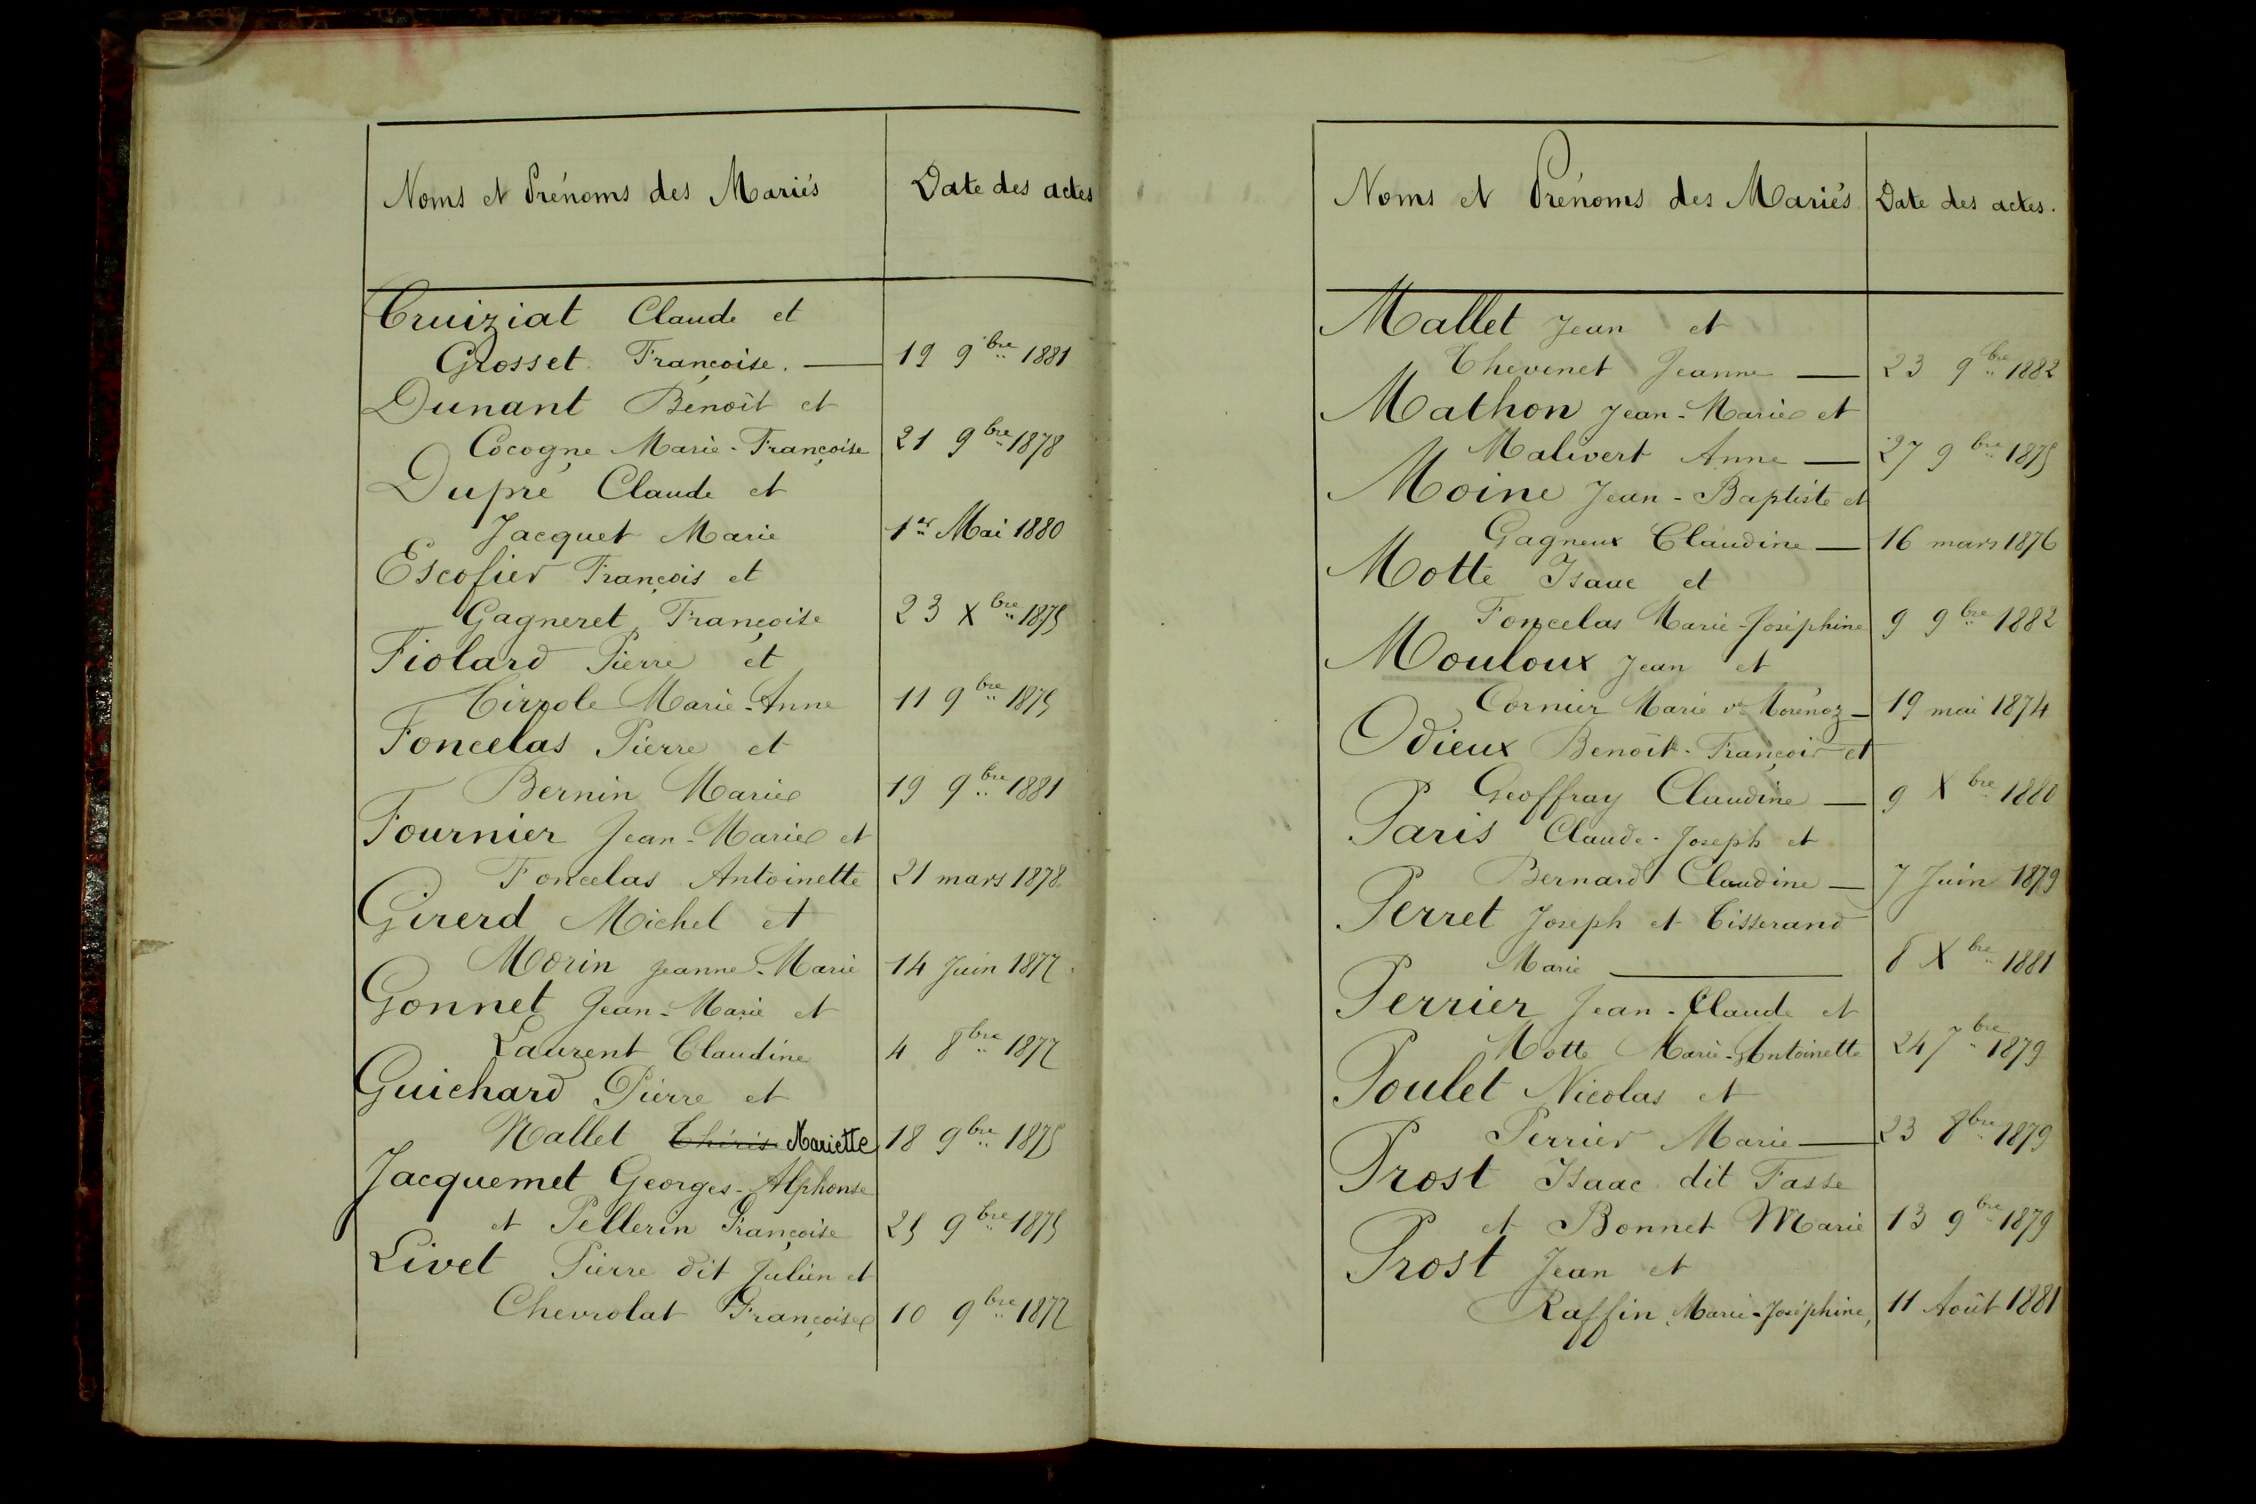 Noms et Prénoms des Mariés
Date des actes
Cruiziat Claude et
Grosset Françoise. — 19 9bre 1881
Dunant Benoît et
Cocogne Marie-Françoise 21 9bre 1878
Dupré Claude et
Jacquet Marie 1er Mai 1880
Escofier François et
Gagneret Françoise 23 Xbre 1875
Fiolard Pierre et
Marie-Anne 11 9bre 1875
Foncelas Pierre et
Bernin Marie 19 9bre 1881
Fournier Jean-Marie et
Foncelas Antoinette 21 mars 1878
Girerd Michel et
Morin Jeanne-Marie 14 Juin 1877
Gonnet Jean-Marie et
Laurent Claudine 4 8bre 1877
Guichard Pierre et
Mallet Mariette 18 9bre 1875
Jacquemet Georges-Alphonse
et Pellerin Françoise 25 9bre 1875
Livet Pierre dit Julien et
Chevrolat Françoise 10 9bre 1877
Noms et Prénoms des Mariés
Date des actes.
Mallet Jean et
Thevenet Jeanne — 23 9bre 1882
Mathon Jean-Marie et
Malivert Anne — 27 9bre 1875
Moine Jean-Baptiste et
Gagneux Claudine — 16 mars 1876
Motte Isaac et
Foncelas Marie-Joséphine 9 9bre 1882
Mouloux Jean et
Cornier Marie ve Morénoz — 19 mai 1874
Odieux Benoît-François et
Geoffray Claudine — 9 Xbre 1880
Paris Claude-Joseph et
Bernard Claudine — 7 Juin 1879
Perret Joseph et Tisserand
Marie — 8 Xbre 1881
Perrier Jean-Claude et
Motte Marie-Antoinette 24 7bre 1879
Poulet Nicolas et
Perrier Marie — 23 8bre 1879
Prost Isaac dit Fasse
et Bonnet Marie 13 9bre 1879
Prost Jean et
Raffin Marie-Joséphine, 11 Août 1881